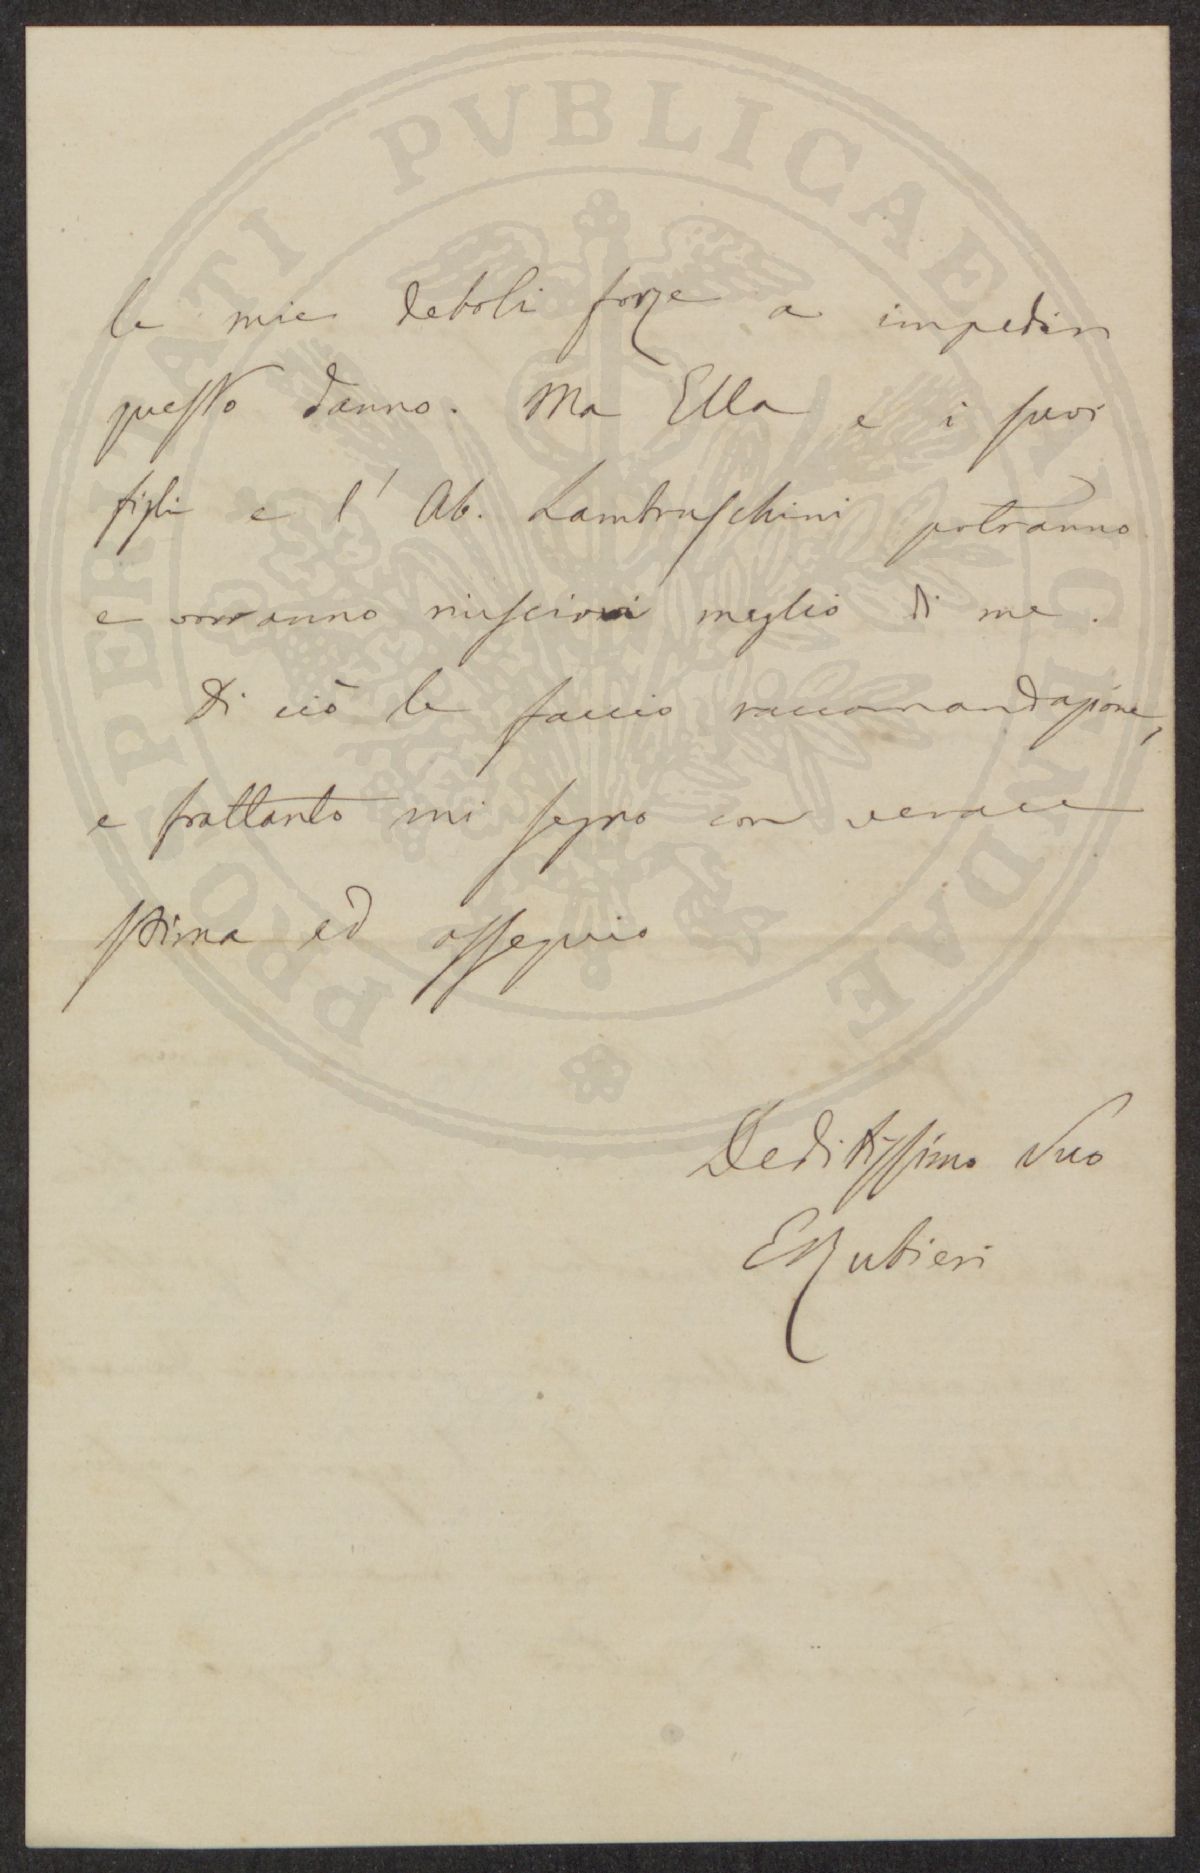 PROSPERITATI PVBLICAE AVGENDAE
le mie deboli forze a impedir
questo danno. Ma Ella e i suoi
figli e l' Ab. Lambruschini potranno
e vorranno riuscirvi meglio di me.
Di ciò le faccio raccomandazione,
e frattanto mi segno con verace
stima ed ossequio
Deditissimo Suo
ERubieri